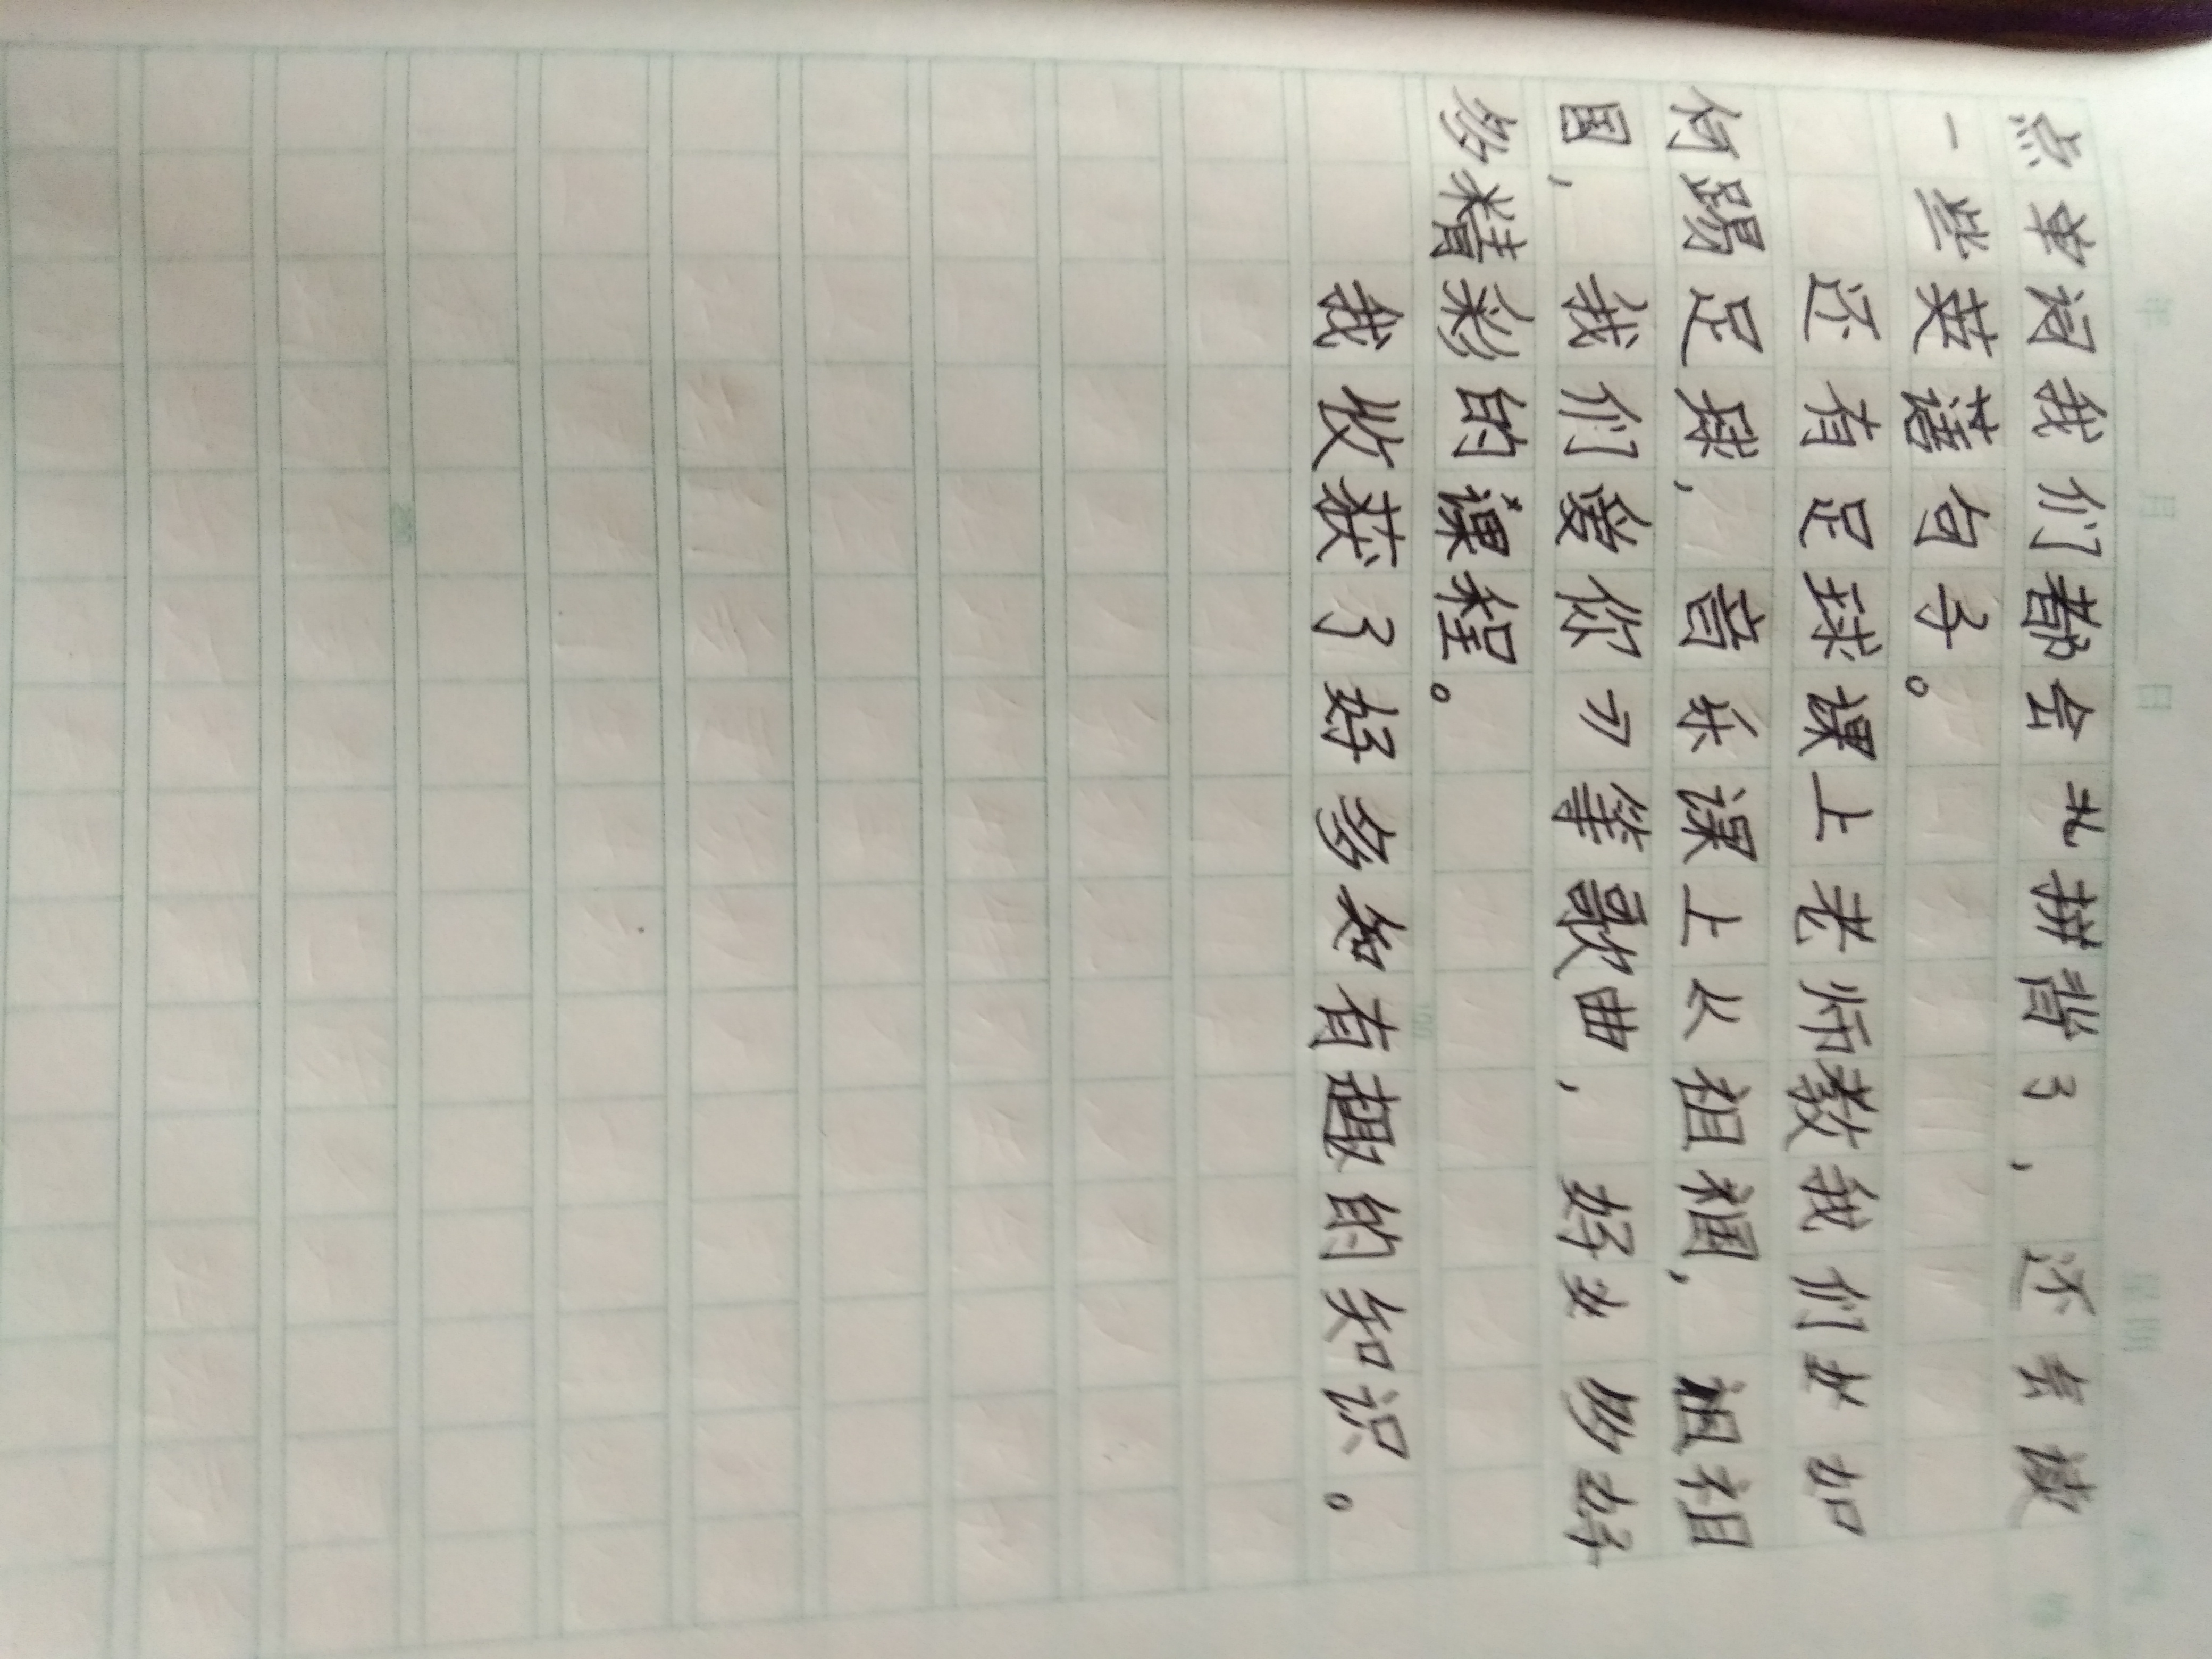 点单词我们都会北拼背了，还会做
一些英语句子。
还有足球课上老师教我们如
何踢足球，音乐课上从祖国，祖
国，我们爱你等歌曲，好多好
多精彩的课程。
我收获了好多知有趣的知识。